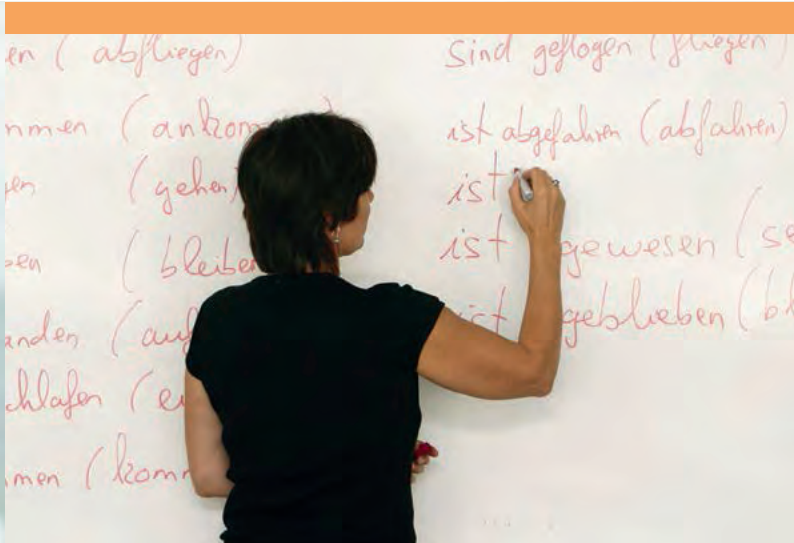 en (abfliegen)
mmen (ankom
en (gehen)
ben (bleiben
anden (auf
chlafen (e
mmen (komm
sind geflogen (fliegen)
ist abgefahren (abfahren)
ist
ist gewesen (se
ist geblieben (bl